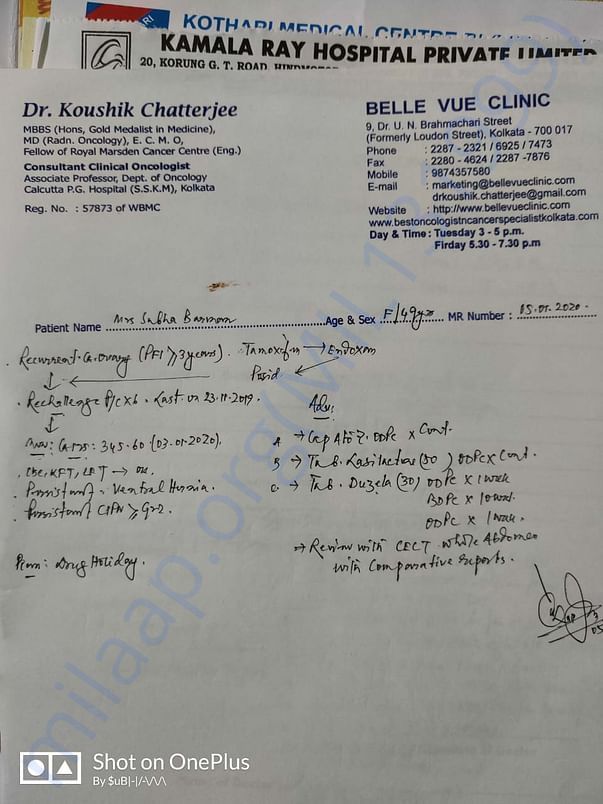 KOTHARI MEDICAL CENTRE
KAMALA RAY HOSPITAL PRIVATE LIMITED
20, KORUNG G. T. ROAD, HINDMOTOR
Dr. Koushik Chatterjee
MBBS (Hons, Gold Medalist in Medicine),
MD (Radn. Oncology), E. C. M. O,
Fellow of Royal Marsden Cancer Centre (Eng.)
Consultant Clinical Oncologist
Associate Professor, Dept. of Oncology
Calcutta P.G. Hospital (S.S.K.M), Kolkata
Reg. No. : 57873 of WBMC
BELLE VUE CLINIC
9, Dr. U. N. Brahmachari Street
(Formerly Loudon Street), Kolkata - 700 017
Phone : 2287 - 2321 / 6925 / 7473
Fax : 2280 - 4624 / 2287 -7876
Mobile : 9874357580
E-mail : marketing@bellevueclinic.com
drkoushik.chatterjee@gmail.com
Website : http://www.bellevueclinic.com
www.bestoncologistncancerspecialistkolkata.com
Day & Time : Tuesday 3 - 5 p.m.
Firday 5.30 - 7.30 p.m
Patient Name Mrs Subha Barman Age & Sex F/49yrs MR Number : 05.01.2020
Recurrent Ca. ovary (PFI ≥ 3 years). Tamoxifen → Endoxan
Rechallenge P/C x 6. Last on 23.11.2019.
Inv: CA-125: 345.60 (03.01.2020).
CBC, KFT, LFT →
Persistant Ventral Hernia.
Persistant CIPN ≥ Gr2.
Plan: Drug Holiday.
Adv:
A → Cap A to Z. ODPC x Cont.
B → Tab. Lasilactone (50) ODPC x Cont.
C → Tab. Duzela (30) ODPC x 1 week
BDPC x 10 week.
ODPC x 1 week.
→ Review with CECT whole Abdomen
with Comparative reports.
05
milaap.org
Shot on OnePlus
By $uB|-|/-\/\/\